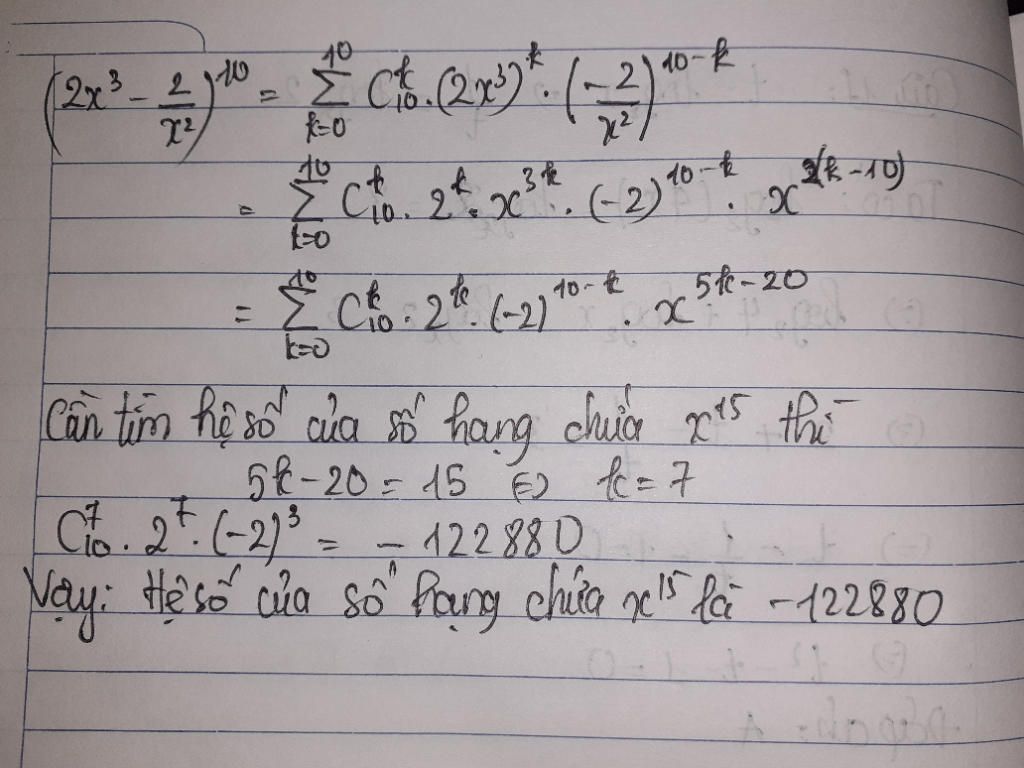 (2x³ - 2/x²)¹⁰ = ∑_{k=0}^{10} C₁₀ᵏ . (2x³)ᵏ . (-2/x²)^{10-k}
= ∑_{k=0}^{10} C₁₀ᵏ . 2ᵏ . x^{3k} . (-2)^{10-k} . x^{2(k-10)}
= ∑_{k=0}^{10} C₁₀ᵏ . 2ᵏ . (-2)^{10-k} . x^{5k-20}
Cần tìm hệ số của số hạng chứa x¹⁵ thì
5k - 20 = 15 ⇔ k = 7
C₁₀⁷ . 2⁷ . (-2)³ = - 122880
Vậy: Hệ số của số hạng chứa x¹⁵ là -122880